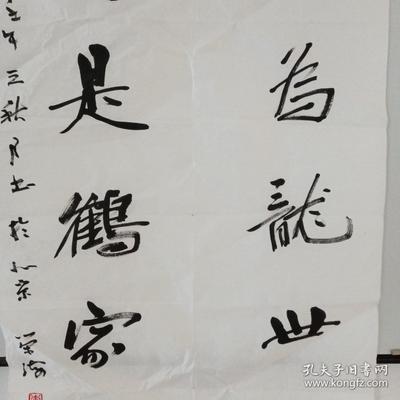 為龍世
是鶴家
午三秋月书於北京
孔夫子旧书网
www.kongfz.com